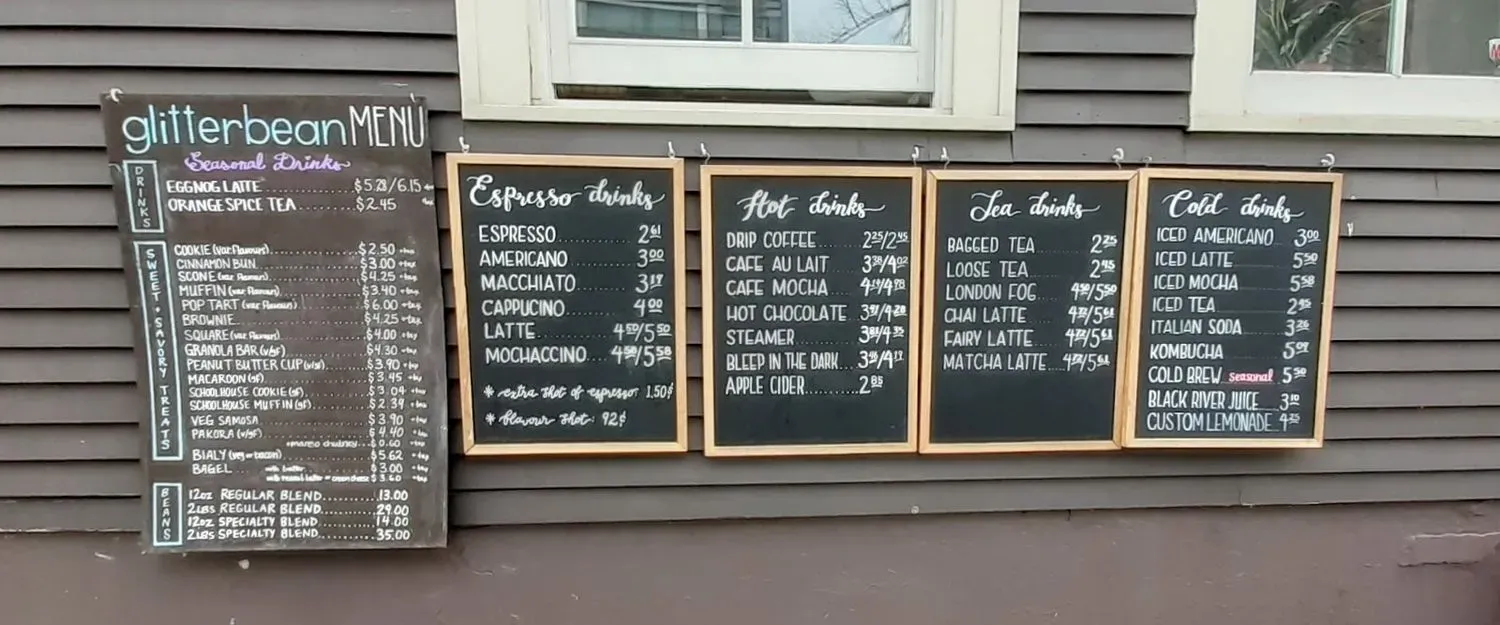 glitterbean MENU
Seasonal Drinks
DRINKS
EGGNOG LATTE $5.28/6.15
ORANGE SPICE TEA $2.45
SWEET + SAVORY TREATS
COOKIE (var. flavours) $2.50 +tax
CINNAMON BUN $3.00 +tax
SCONE (var. flavours) $4.25 +tax
MUFFIN (var. flavours) $3.40 +tax
POP TART (var. flavours) $6.00 +tax
BROWNIE $4.25 +tax
SQUARE (var. flavours) $4.00 +tax
GRANOLA BAR (v/gf) $4.30 +tax
PEANUT BUTTER CUP (v/gf) $3.90 +tax
MACAROON (gf) $3.45 +tax
SCHOOLHOUSE COOKIE (gf) $3.04 +tax
SCHOOLHOUSE MUFFIN (gf) $2.39 +tax
VEG SAMOSA $3.90 +tax
PAKORA (v/gf) $4.40 +tax
chutney $0.60 +tax
BIALY (veg or bacon) $5.62 +tax
BAGEL with butter $3.00 +tax
or cream cheese $3.60 +tax
BEANS
12oz REGULAR BLEND 13.00
2LBS REGULAR BLEND 29.00
12oz SPECIALTY BLEND 14.00
2LBS SPECIALTY BLEND 35.00
Espresso drinks
ESPRESSO 2.61
AMERICANO 3.00
MACCHIATO 3.17
CAPPUCINO 4.00
LATTE 4.50/5.50
MOCHACCINO 4.58/5.58
* extra shot of espresso 1.50¢
* flavour shot: 92¢
Hot drinks
DRIP COFFEE 2.25/2.45
CAFE AU LAIT 3.38/4.02
CAFE MOCHA
HOT CHOCOLATE
STEAMER
BLEEP IN THE DARK
APPLE CIDER 2.85
Tea drinks
BAGGED TEA 2.25
LOOSE TEA 2.45
LONDON FOG 4.50/5.50
CHAI LATTE
FAIRY LATTE
MATCHA LATTE
Cold drinks
ICED AMERICANO 3.00
ICED LATTE 5.50
ICED MOCHA 5.58
ICED TEA 2.95
ITALIAN SODA 3.26
KOMBUCHA
COLD BREW seasonal 5.50
BLACK RIVER JUICE 3.10
CUSTOM LEMONADE